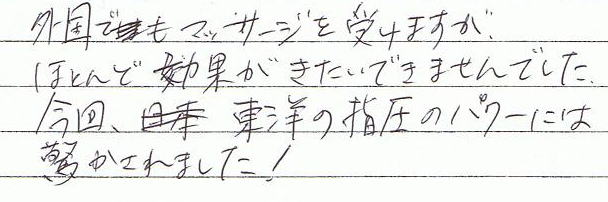 外国でもマッサージを受けますが、
ほとんど効果がきたいできませんでした。
今回、東洋の指圧のパワーには
驚かされました！